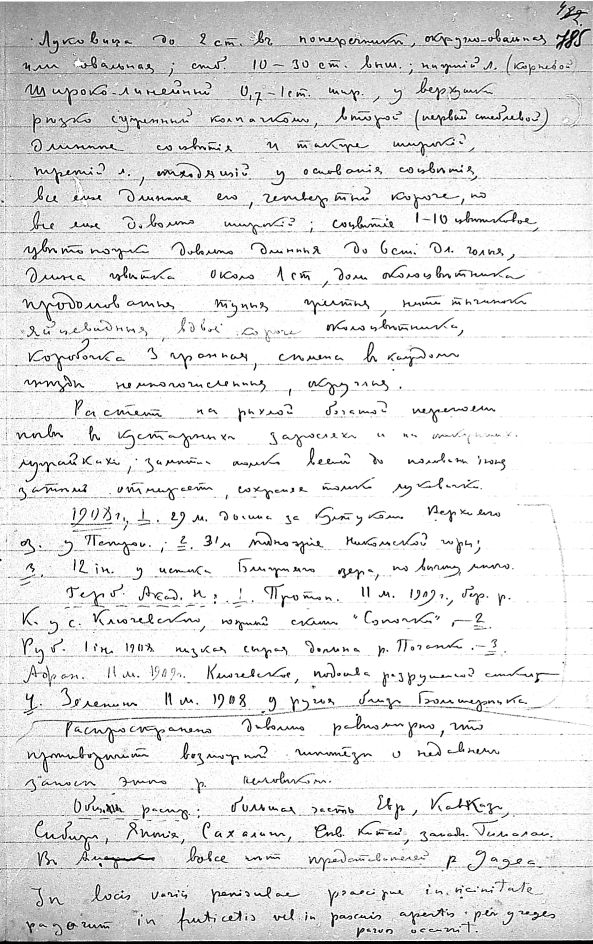 785
Луковица до 2 ст. въ поперечникѣ, округло-овальная
или овальная; стб. 10–30 ст. выш.; нижній л. (корневой)
широко-линейный 0,7–1 ст. шир., у верхушки
рѣзко суженный колпачкомъ, второй (первый стеблевой)
длиннѣе соцвѣтія и также широкій,
третій л., отходящій у основанія соцвѣтія,
все еще длиннѣе его, четвертый короче, но
все еще довольно широкій; соцвѣтіе 1–10 цвѣтковое,
цвѣтоножки довольно длинныя до 6 ст. дл. голыя,
длина цвѣтка около 1 ст, доли околоцвѣтника
продолговатыя тупыя желтыя, нити тычинокъ
яйцевидныя, вдвое короче околоцвѣтника,
коробочка 3 гранная, сѣмена въ каждомъ
гнѣздѣ немногочисленныя, округлыя.
Растетъ на рыхлой богатой перегноемъ
почвѣ въ кустарныхъ заросляхъ и на
лужайкахъ; замѣтна только весной до половины іюня
затѣмъ отмираетъ, сохраняя только луковички.
1908 г., 1. 29 м. за Култукомъ Верхняго
оз. у ; 2. 31 м подножіе Никольской горы;
3. 12 ін. у истока Ближняго озера, по много.
Герб. Акад. Н: 1. Протоп. 11 м. 1909 г., бер. р.
К. у с. Ключевского, южный склонъ "Сопочки", – 2.
Руб. 1 ін. 1908 низкая сырая долина р. – 3.
11 м. 1909 г. Ключевское, подошва разрушеной
4. Зеленинъ 11 м. 1908 у ручья близъ Большерѣцка
Распространено довольно равномѣрно, что
противорѣчитъ возможной гипотезѣ о недавнемъ
заносѣ этого р. человѣкомъ.
Общее распр.: большая часть Евр, Кавказъ,
Сибирь, Японія, Сахалинъ, Сѣв. Китай, западн. Гималаи.
Въ вовсе нѣтъ представителей р. Gagea.
In locis variis peninsulae praecipue in vicinitate
pagorum in fruticetis vel in pascuis apertis per greges
parvos occurrit.